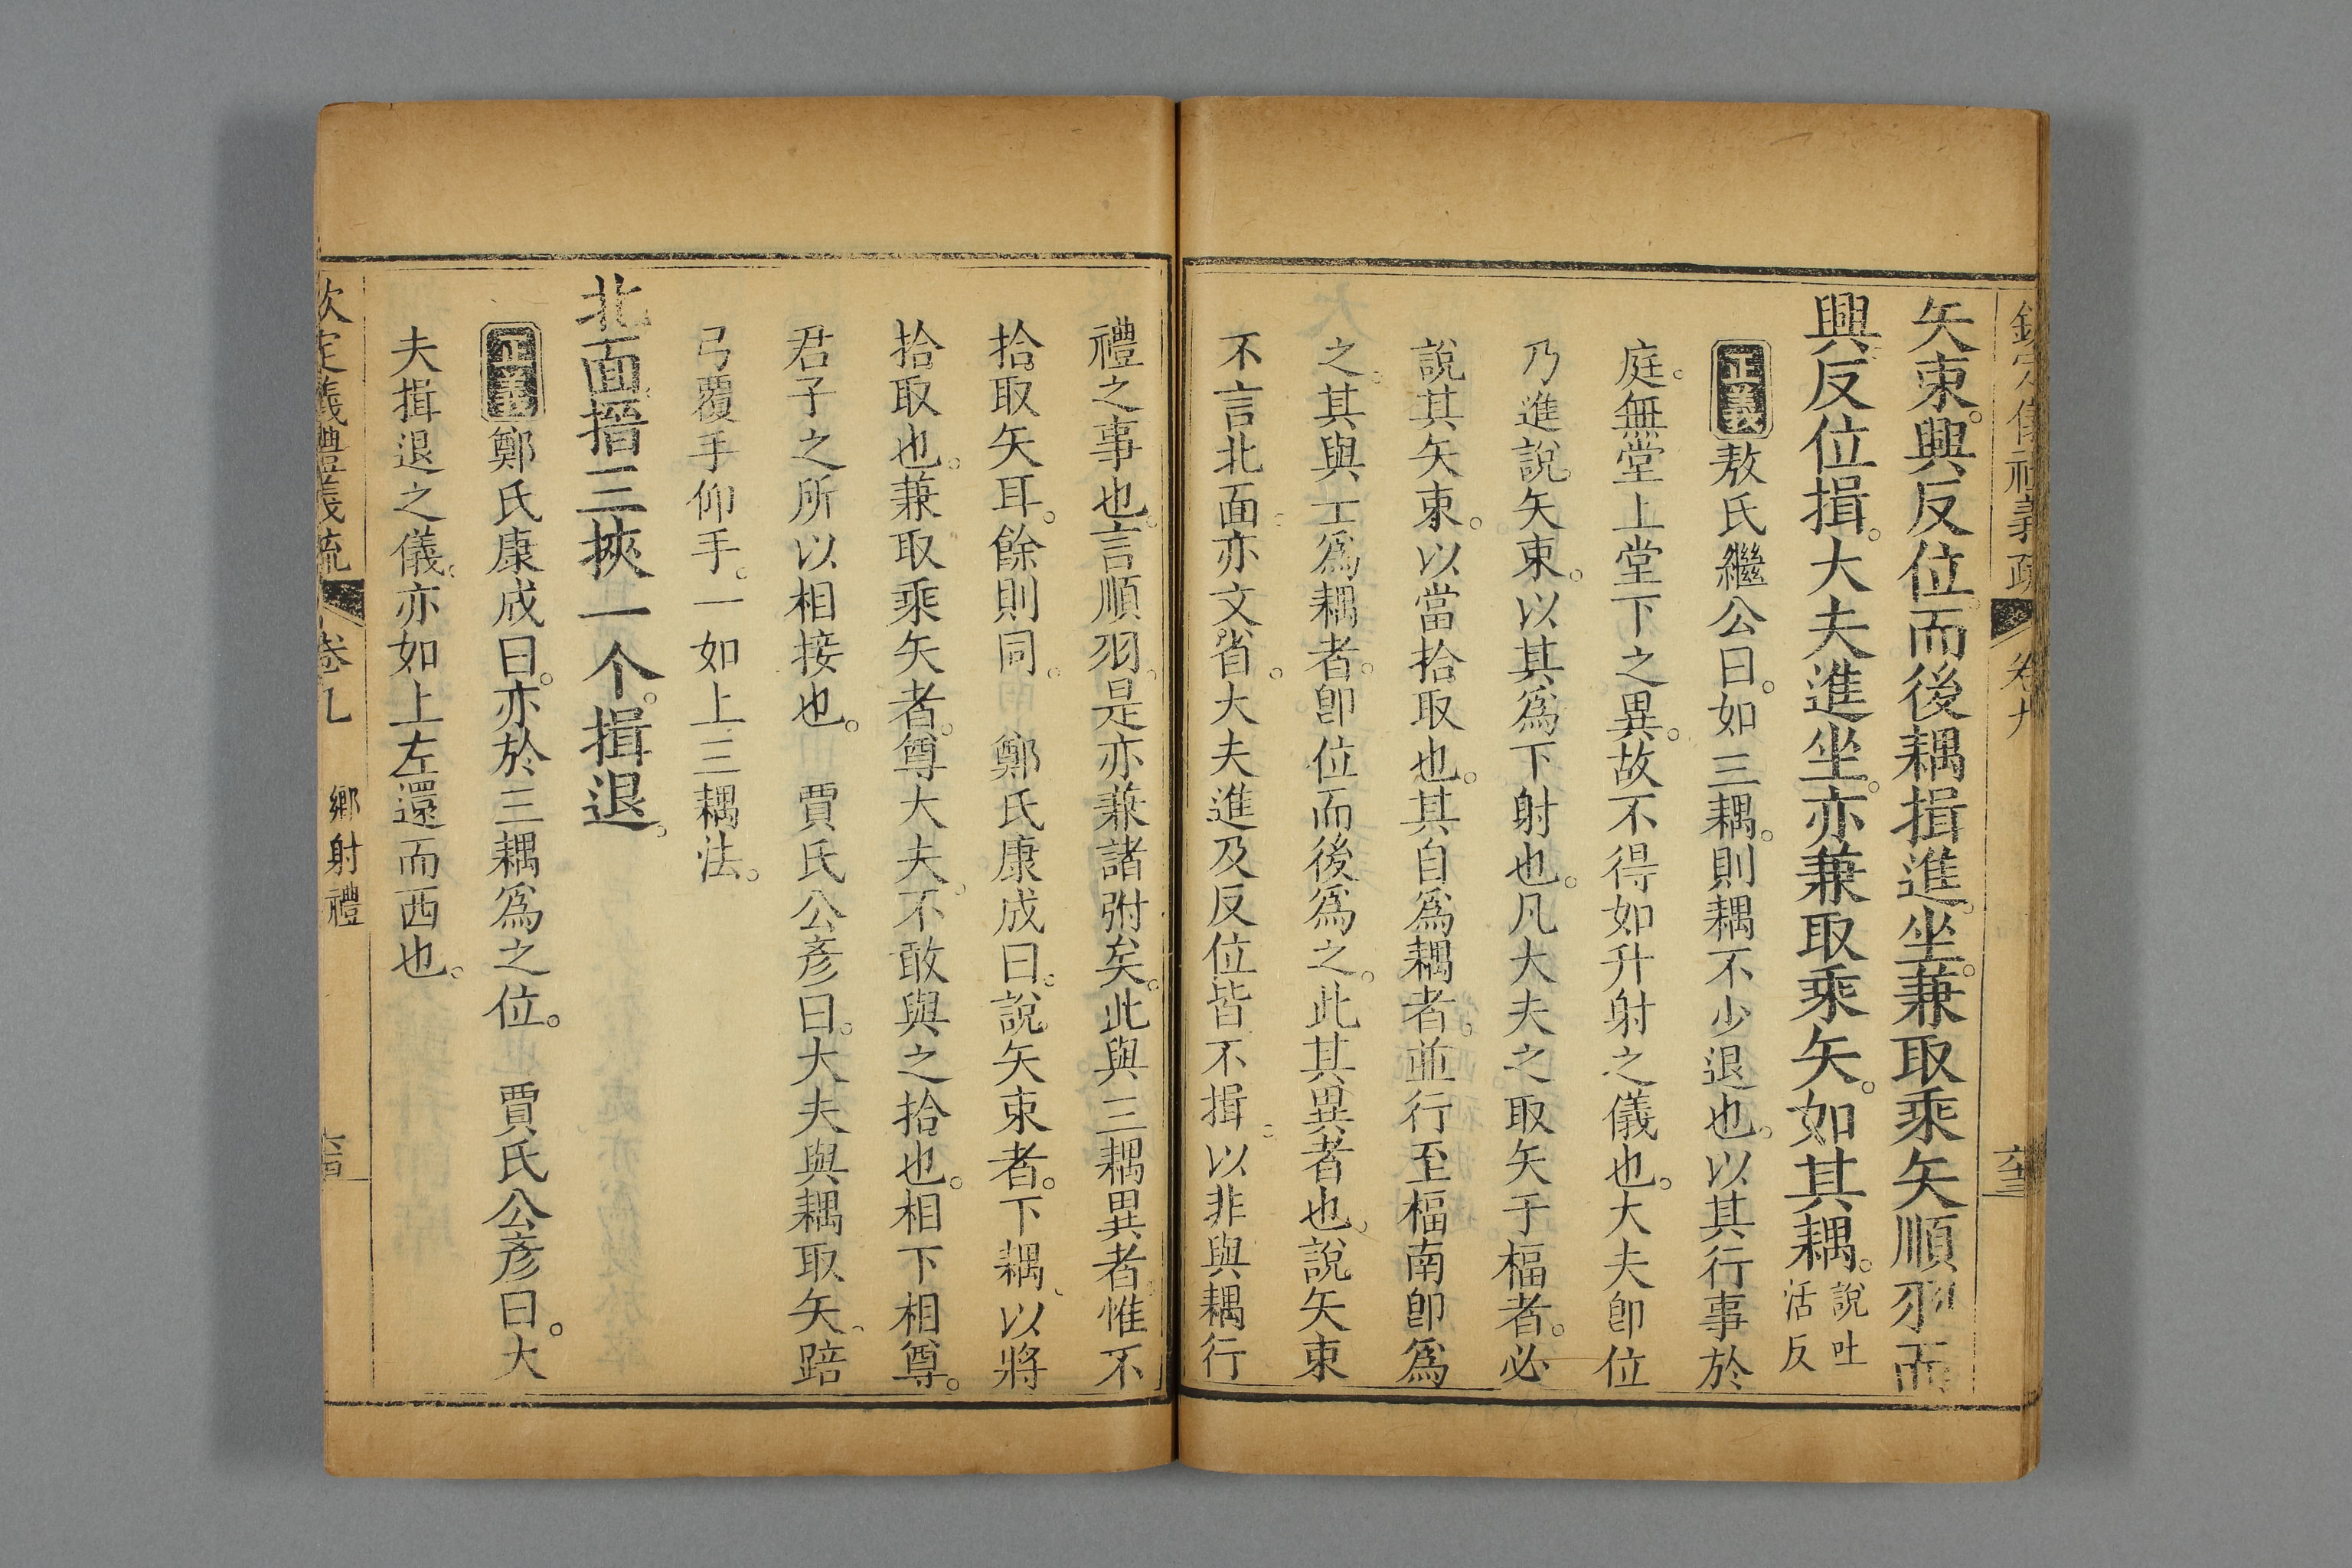 欽定儀禮義疏 卷九 六十三
矢束。興反位。而後耦揖進。坐。兼取乘矢。順羽而
興。反位揖。大夫進坐。亦兼取乘矢。如其耦。說吐活反
正義敖氏繼公曰。如三耦。則耦不少退也。以其行事於
庭。無堂上堂下之異。故不得如升射之儀也。大夫卽位
乃進說矢束。以其爲下射也。凡大夫之取矢于楅者。必
說其矢束。以當拾取也。其自爲耦者。並行至楅南卽爲
之。其與士爲耦者。卽位而後爲之。此其異者也。說矢束
不言北面。亦文省。大夫進及反位皆不揖。以非與耦行
禮之事也。言順羽。是亦兼諸弣矣。此與三耦異者。惟不
拾取矢耳。餘則同。 鄭氏康成曰。說矢束者。下耦、以將
拾取也。兼取乘矢者。尊大夫、不敢與之拾也。相下相尊。
君子之所以相接也。 賈氏公彥曰。大夫與耦取矢、踣
弓覆手仰手。一如上三耦法。
北面搢三挾一个。揖退。
正義鄭氏康成曰。亦於三耦爲之位。 賈氏公彥曰。大
夫揖退之儀。亦如上左還而西也。
欽定儀禮義疏 卷九 鄉射禮 六四